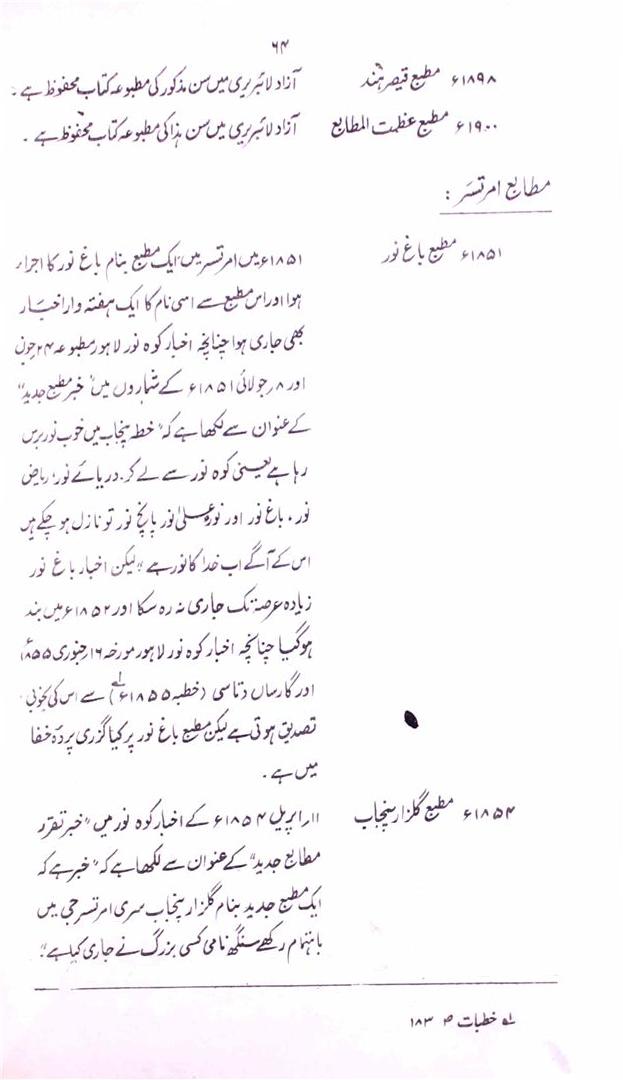 ۶۴
۱۸۹۸ء مطبع قیصر ہند آزاد لائبریری میں سن مذکور کی مطبوعہ کتاب محفوظ ہے ۔
۱۹۰۰ء مطبع عظمت المطابع آزاد لائبریری میں سن ہذا کی مطبوعہ کتاب محفوظ ہے ۔
مطابع امرتسر :
۱۸۵۱ء مطبع باغ نور ۱۸۵۱ء میں امرتسر میں ایک مطبع بنام باغ نور کا اجراء
ہوا اور اس مطبع سے اسی نام کا ایک ہفتہ وار اخبار
بھی جاری ہوا چنانچہ اخبار کوہ نور لاہور مطبوعہ ۲۴ جون
اور ۸ جولائی ۱۸۵۱ء کے شماروں میں "خبر مطبع جدید"
کے عنوان سے لکھا ہے کہ "خطہ پنجاب میں خوب نور برس
رہا ہے یعنی کوہ نور سے لے کر۔ دریائے نور، ریاض
نور۔ باغ نور اور نور علیٰ نور پانچ نور تو نازل ہو چکے ہیں
اس کے آگے اب خدا کا نور ہے" لیکن اخبار باغ نور
زیادہ عرصہ تک جاری نہ رہ سکا اور ۱۸۵۲ء میں بند
ہو گیا چنانچہ اخبار کوہ نور لاہور مورخہ ۱۶ جنوری ۱۸۵۵ء
اور گارساں دتاسی (خطبہ ۱۸۵۵ء)لہ سے اس کی بخوبی
تصدیق ہوتی ہے لیکن مطبع باغ نور پر کیا گزری پردۂ خفا
میں ہے ۔
۱۸۵۴ء مطبع گلزار پنجاب ۱۱ اپریل ۱۸۵۴ء کے اخبار کوہ نور میں "خبر تقرر
مطابع جدید" کے عنوان سے لکھا ہے کہ "خبر ہے کہ
ایک مطبع جدید بنام گلزار پنجاب سری امرتسر جی میں
باہتمام رکھے سنگھ نامی کسی بزرگ نے جاری کیا ہے"
لہ خطبات ص ۱۸۳